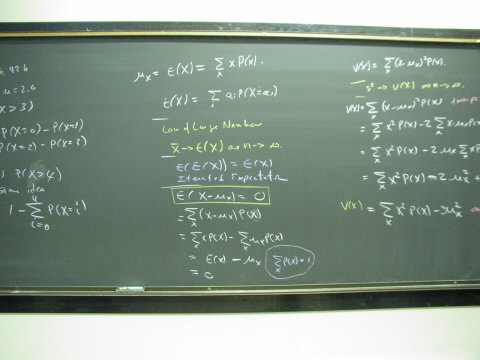 μ = 2.6
X > 3)
P(X=0) - P(X=1)
P(X=2) - P(X=3)
P(X>4)
Same idea
1 - Σ_{i=0}^{4} P(X=i)
μ_x = E(X) = Σ_x x P(x).
E(X) = Σ_i a_i P(X=a_i)
Law of Large Numbers
X̄ → E(X) as n → ∞.
E(E(X)) = E(X)
Iterated Expectation
E(X-μ_x) = 0
= Σ_x (x-μ_x) P(X)
= Σ_x x P(x) - Σ_x μ_x P(x)
= E(x) - μ_x
Σ_x P(x) = 1
= 0
V(X) = Σ_x (x-μ_x)² P(x).
s² → V(X) as n → ∞.
V(X) = Σ_x (x-μ_x)² P(x)
= Σ_x x² P(x) - 2 Σ_x x μ_x P(x)
= Σ_x x² P(x) - 2 μ_x Σ_x x P
= Σ_x x² P(x) - 2 μ_x² +
V(X) = Σ_x x² P(x) - μ_x²